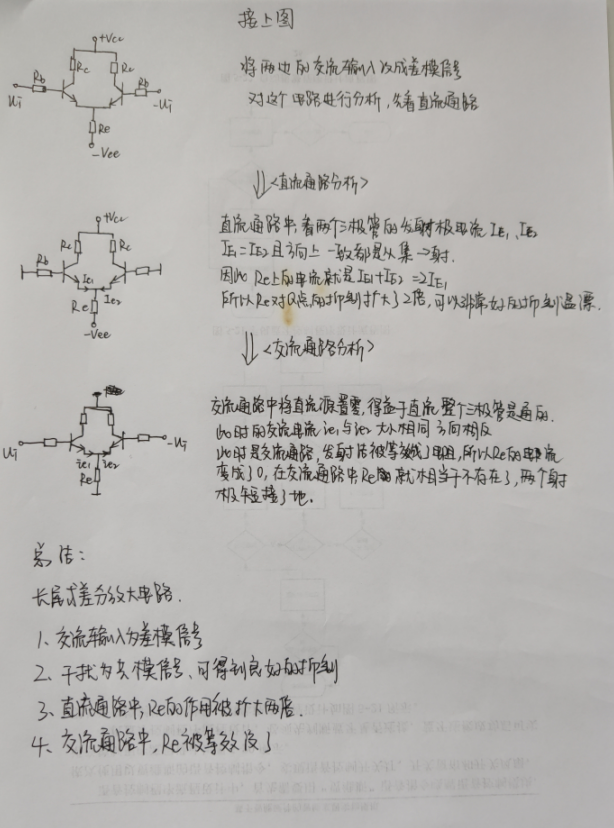 接上图
+Vcc
Rc
Rc
Rb
Rb
Ui
-Ui
Re
-Vee
将两边的交流输入改成差模信号
对这个电路进行分析，先看直流通路
<直流通路分析>
+Vcc
Rc
Rc
Rb
IE1
IE2
Re
-Vee
直流通路中，看两个三极管的发射极电流 IE1、IE2
IE1=IE2 且方向上一致都是从集→射.
因此 Re上的电流就是IE1+IE2=2IE1
所以Re对Q点的抑制扩大了2倍，可以非常好的抑制温漂.
<交流通路分析>
Ui
-Ui
ie1
ie2
Re
交流通路中将直流源置零，得益于直流 整个三极管是通的.
此时的交流电流 ie1与ie2 大小相同 方向相反
此时是交流通路，发射结被等效成了电阻，所以Re的电流
变成了0，在交流通路中Re就相当于不存在了，两个射
极短接了地.
总结：
长尾式差分放大电路.
1、交流输入为差模信号
2、干扰为共模信号、可得到良好的抑制
3、直流通路中，Re的作用被扩大两倍.
4、交流通路中，Re被等效没了